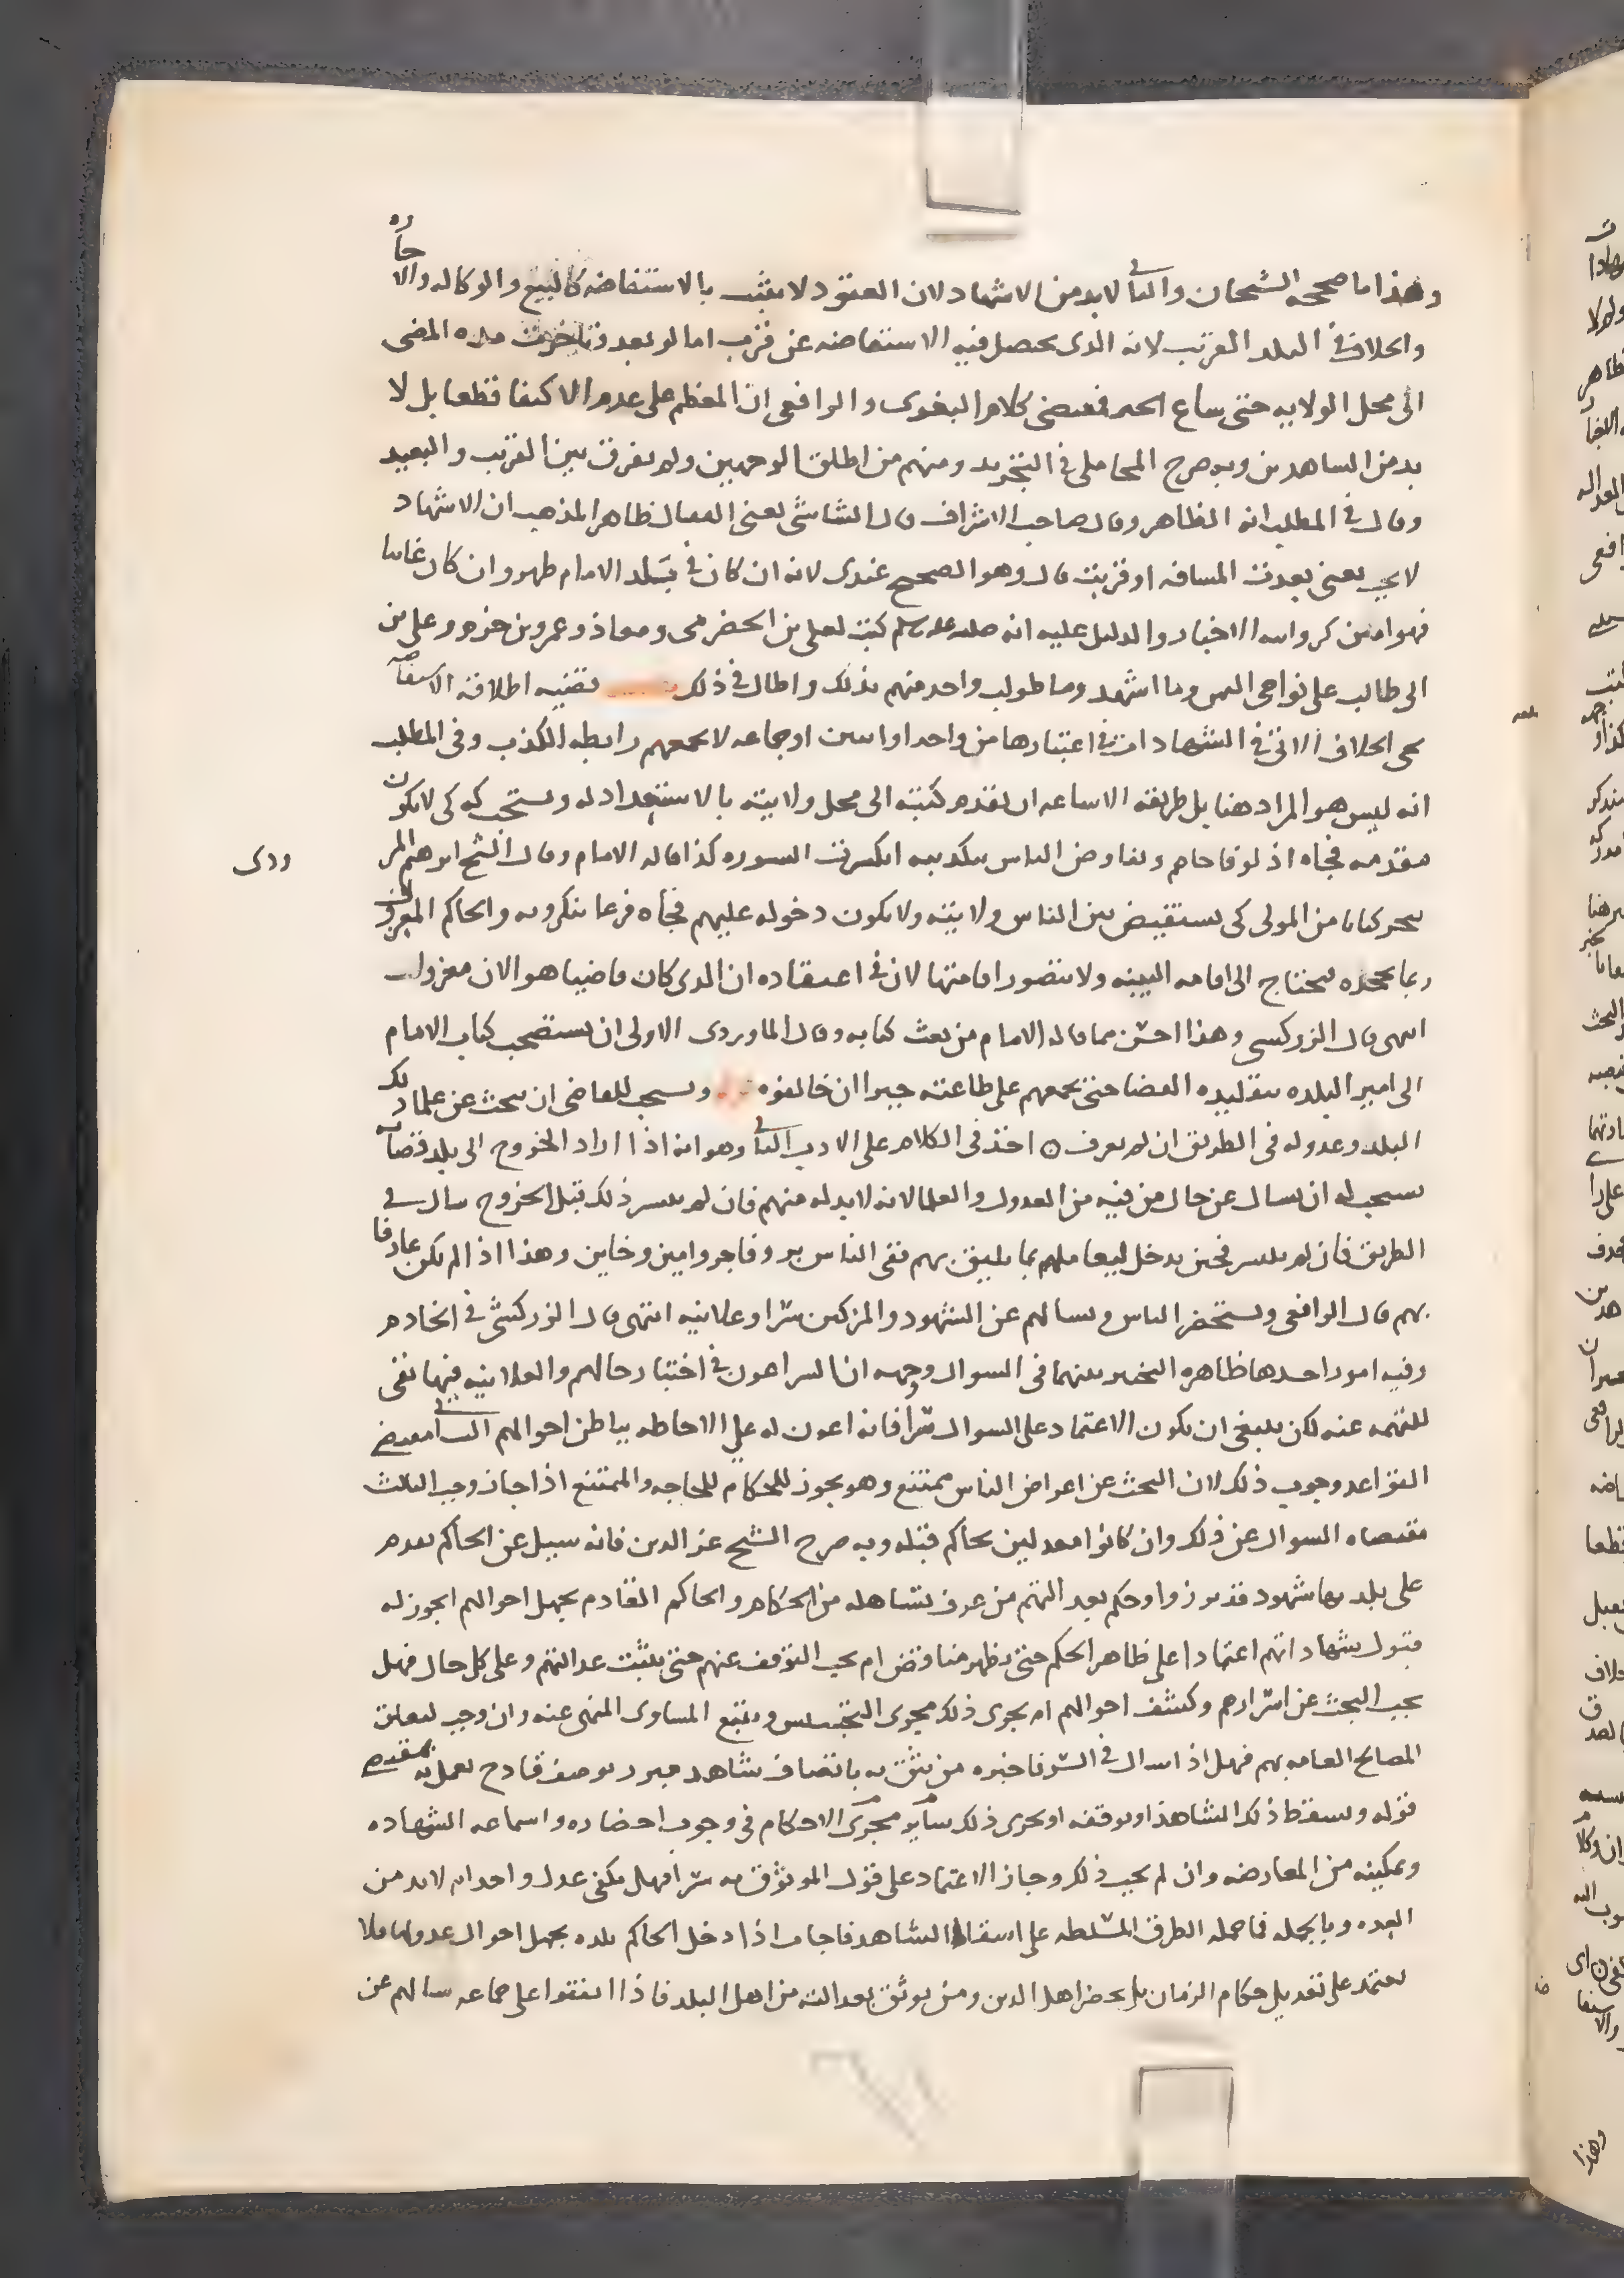 وهذا ما صححه الشيخان والثاني لابد من الاشهاد لان العقود لا تثبت بالاستفاضه كالبيع والوكاله والاجاره
والخلاف في البلد القريب لانه الذي يحصل فيه الاستفاضه عن قرب اما لو بعد وتاخرت مده المضى
الى محل الولايه حتى شاع الخبر فمقتضى كلام البغوى والرافعى ان المعظم على عدم الاكتفا قطعا بل لا
بد من الشاهدين وبه صرح المحاملى في التجريد ومنهم من اطلق الوجهين ولم يفرق بين القريب والبعيد
وقال في المطلب انه الظاهر وقال صاحب الاشراف قال الشاشى يعنى القفال ظاهر المذهب ان الاشهاد
لا يجب يعنى بعدت المسافه او قربت قال وهو الصحيح عندى لانه ان كان في بلد الامام ظهر وان كان غايبا
فهو امين كرواية الاخبار والدليل عليه انه صلى الله عليه وسلم كتب لعلى بن الحضرمى ومعاذ وعمرو بن حزم وعلى بن
ابى طالب على نواحى اليمن وما اشهد وما طولب واحد منهم بذلك واطال في ذلك تنبيه اطلاقه الاستفاضه
يجى الخلاف الاتى في الشهادات في اعتبارها من واحد او اثنين او جماعه لا يجمعهم رابطه الكذب وفى المطلب
انه ليس هو المراد هنا بل طريقه الاشاعه ان يقدم كتبه الى محل ولايته بالاستعداد له ويستحب له كى لا يكون
مقدمه فجاه اذ لو فاجاهم وتفاوض الناس بتكذيبه انكسرت السوره كذا قاله الامام وقال الشيخ ابرهيم المر
وردى
يتنجز كتابا من المولى كى يستفيض بين الناس ولايته ولا يكون دخوله عليهم فجاه فربما ينكرونه والحاكم المعزول
ربما يجحده فيحتاج الى اقامه البينه ولا يتصور اقامتها لان في اعتقاده ان الذى كان قاضيا هو الان معزول
انتهى قال الزركشى وهذا احسن مما قاله الامام من بعث كتابه وقال الماوردى الاولى ان يستصحب كتاب الامام
الى امير البلده بتقليده القضا حتى يجمعهم على طاعته جبرا ان خالفوه ويستحب للقاضى ان يبحث عن علما ذلك
البلد وعدوله في الطريق ان لم يعرف ۞ اخذ في الكلام على الادب الثانى وهو انه اذا اراد الخروج الى بلد قضايه
يستحب له ان يسال عن حال من فيه من العدول والعلما لانه لابد له منهم فان لم يتيسر ذلك قبل الخروج سال في
الطريق فان لم يتيسر فحين يدخل ليعاملهم بما يليق بهم ففى الناس بر وفاجر وامين وخاين وهذا اذا لم يكن عارفا
بهم قال الرافعى ويستحضر الناس ويسالهم عن الشهود والمزكين سرا وعلانيه انتهى قال الزركشى في الخادم
وفيه امور احدها ظاهره التخيير بينهما في السوال ووجهه ان السر اعون في اختبار حالهم والعلانيه فيها نفى
للتهمه عنه لكن ينبغى ان يكون الاعتماد على السوال سرا فانه اعون له على الاحاطه بباطن احوالهم الثانى مقتضى
القواعد وجوب ذلك لان البحث عن اعراض الناس ممتنع وهو يجوز للحكام للحاجه والممتنع اذا جاز وجب الثالث
مقتضاه السوال عن ذلك وان كانوا معدلين بحاكم قبله وبه صرح الشيخ عز الدين فانه سيل عن الحاكم يقدم
على بلد بها شهود قد برزوا وحكم بعدالتهم من عرف بتساهله من الحكام والحاكم القادم يجهل احوالهم ايجوز له
قبول شهاداتهم اعتمادا على ظاهر الحكم حتى يظهر مناقض ام يجب التوقف عنهم حتى يثبت عدالتهم وعلى كل حال فهل
يجب البحث عن اسرارهم وكشف احوالهم ام يجرى ذلك مجرى التجسس وتتبع المساوى المنهى عنه وان وجب لتعلق
المصالح العامه بهم فهل اذا سال في السر فاخبره من يثق به باتصاف شاهد مبرز بوصف قادح يعمل به بمقتضى
قوله ويسقط ذلك الشاهد او يوقفه او يجرى ذلك ساير مجرى الاحكام في وجوب احضاره واسماعه الشهاده
وتمكينه من المعارضه وان لم يجب ذلك وجاز الاعتماد على قول الموثوق به سرا فهل يكفى عدل واحد ام لابد من
العده وبالجمله فما جمله الطرق المسلطه على اسقاط الشاهد فاجاب اذا دخل الحاكم بلده يجهل احوال عدولها فلا
يعتمد على تعديل حكام الزمان بل يحضر اهل الدين ومن يوثق بعدالته من اهل البلد فاذا اتفقوا على جماعه سالهم عن